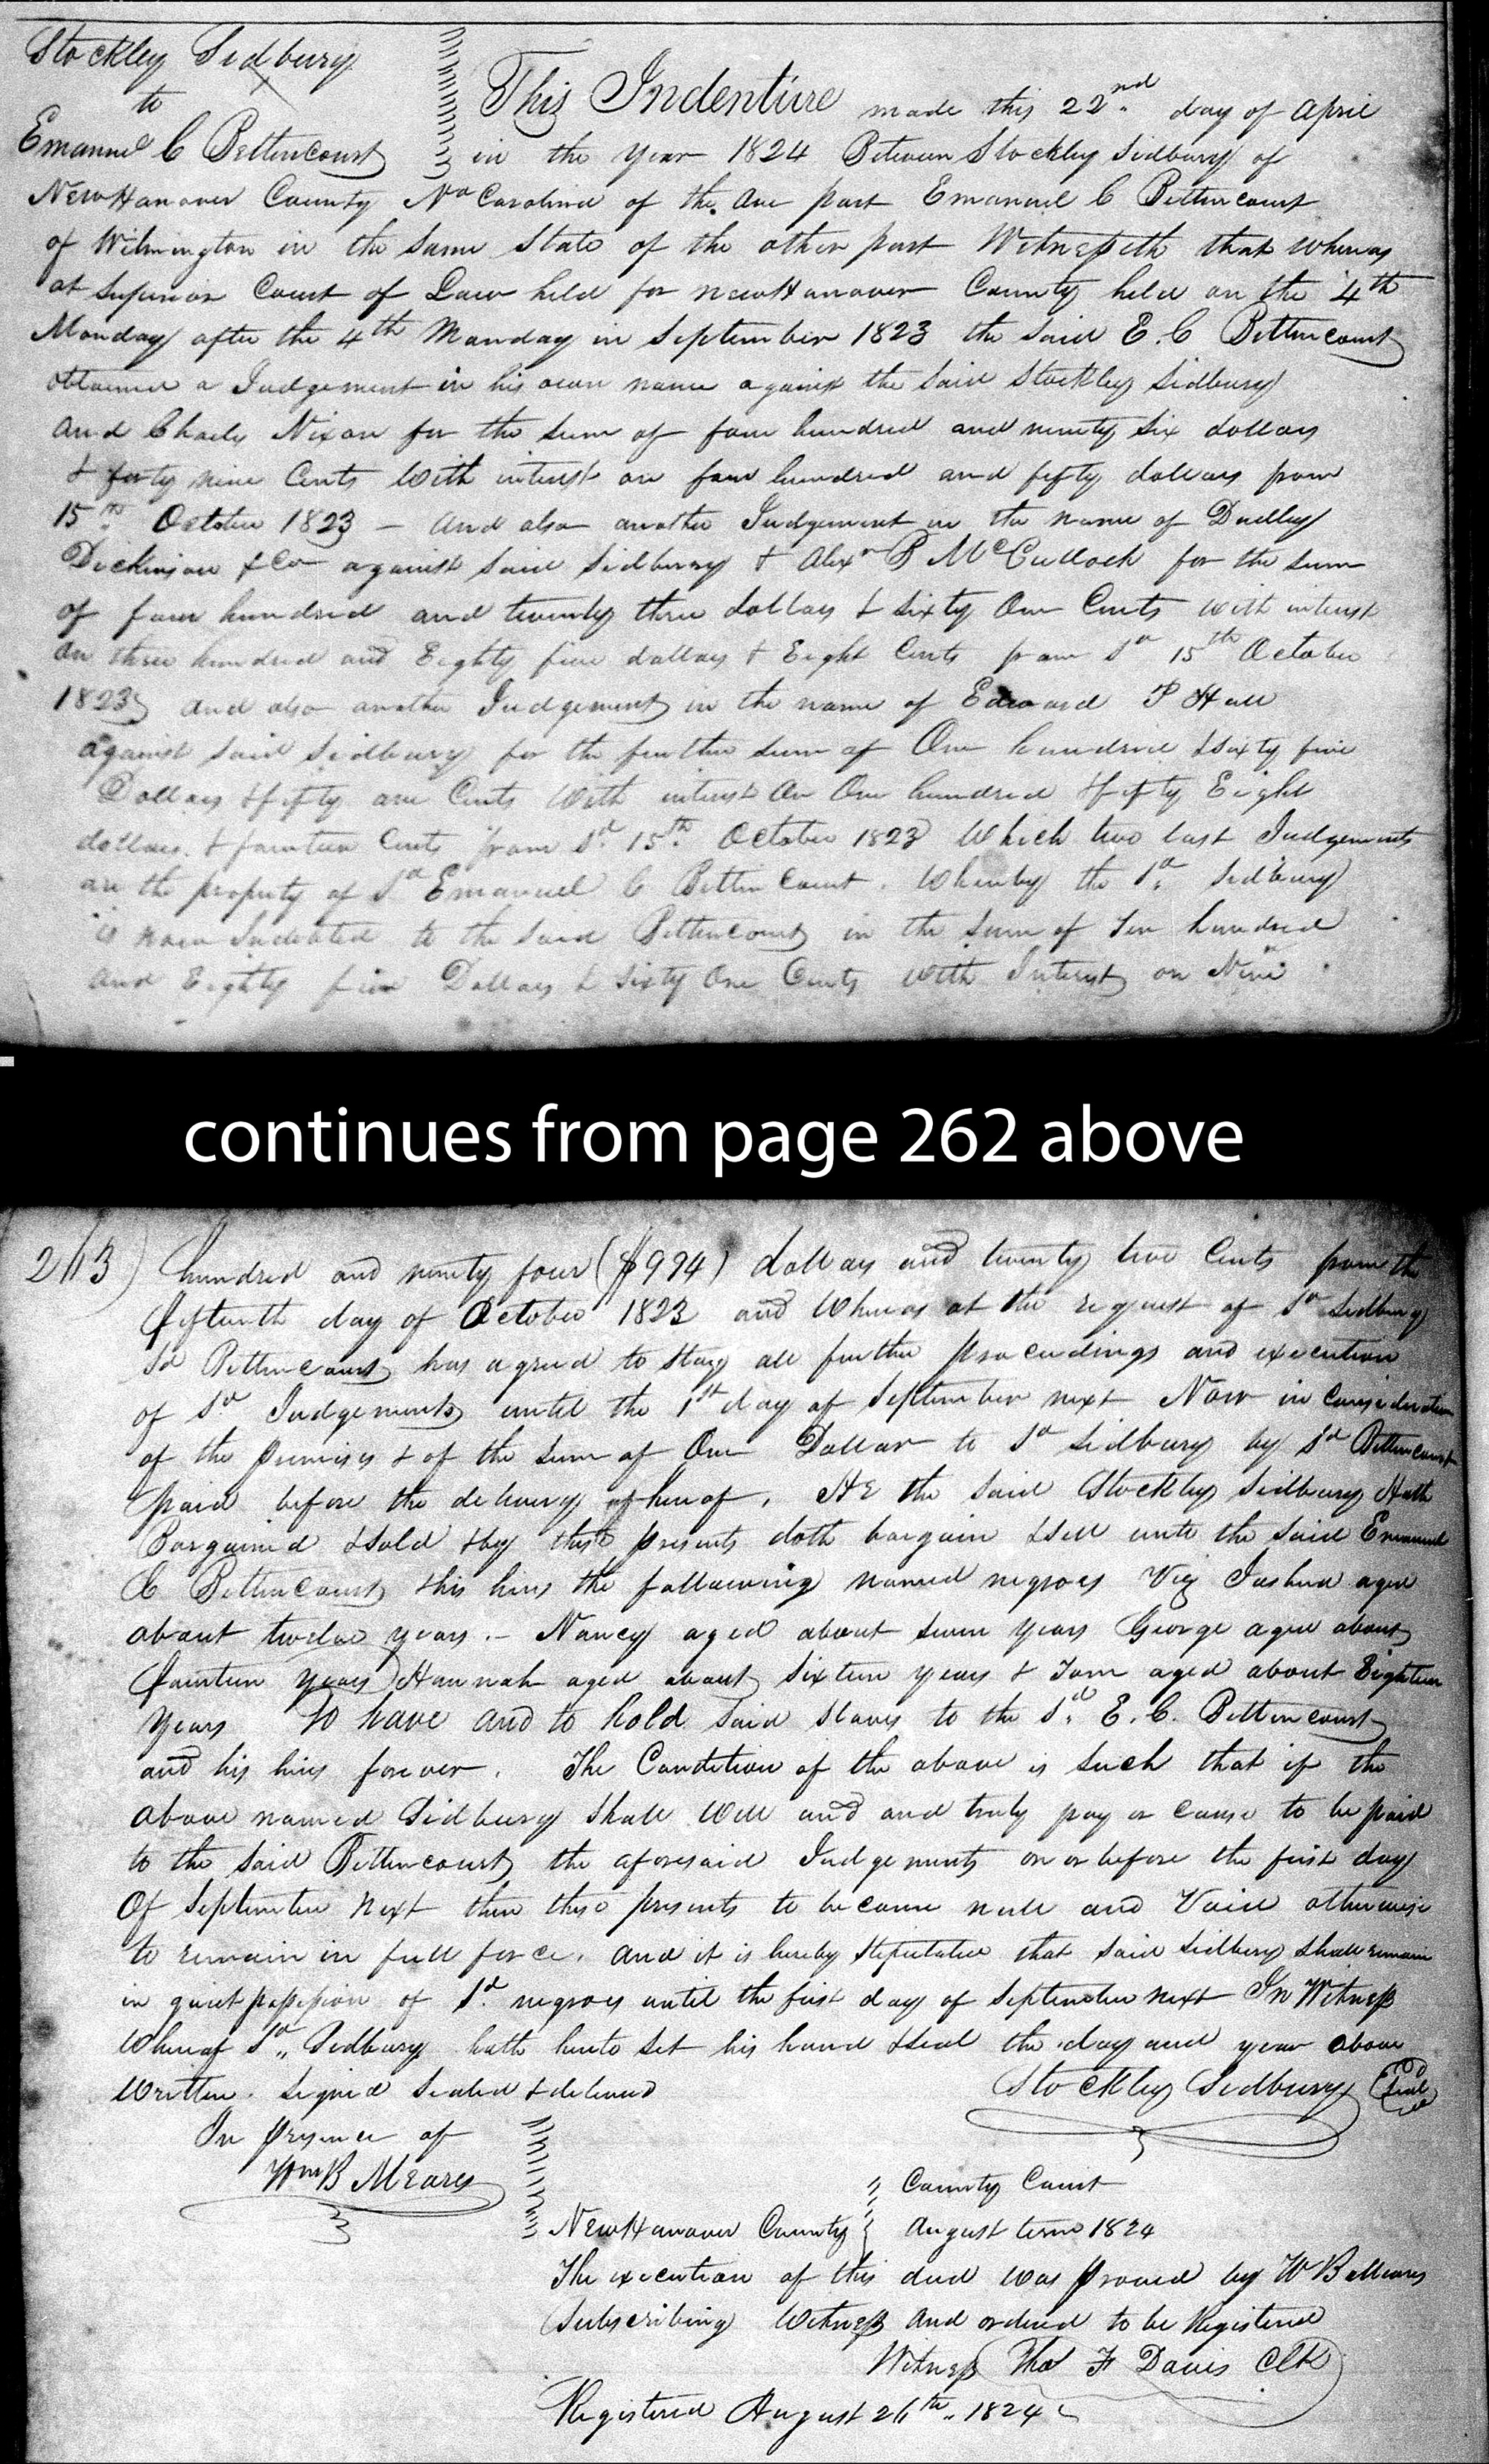 Stockley Sidbury
to
Emanuel C Bettencourt
This Indenture made this 22nd day of April
in the year 1824 Between Stockley Sidbury of
New Hanover County No Carolina of the one part Emanuel C Bettencourt
of Wilmington in the same State of the other part Witnesseth that whereas
at Superior Court of Law held for new Hanover County held on the 4th
Monday after the 4th Monday in September 1823 the said E. C Bettencourt
obtained a Judgement in his own name against the said Stockley Sidbury
and Charles Nixon for the sum of four hundred and ninety six dollars
& forty nine Cents With interest on four hundred and fifty dollars from
15th October 1823 — and also another Judgement in the name of Dudley
Dickinson & Co against said Sidbury & Alexr P McCullock for the sum
of four hundred and twenty three dollars & sixty One Cents with interest
on three hundred and Eighty five dollars & Eight Cents from sd 15th October
1823 and also another Judgement in the name of Edward P Hall
against said Sidbury for the further sum of One hundred & sixty five
Dollars & fifty one Cents With interest on One hundred & fifty Eight
dollars & fourteen Cents from sd 15th October 1823 Which two last Judgements
are the property of sd Emanuel C Bettencourt. Whereby the sd Sidbury
is now Indebted to the said Bettencourt in the sum of Ten hundred
and Eighty five Dollars & Sixty One Cents with Interest on Nine
continues from page 262 above
263) hundred and ninety four ($994) dollars and twenty two Cents from the
fifteenth day of October 1823 and Whereas at the request of sd Sidbury
sd Bettencourt has agreed to stay all further proceedings and execution
of sd Judgements until the 1st day of September next Now in Consideration
of the premises & of the sum of One Dollar to sd Sidbury by sd Bettencourt
paid before the delivery of hereof. He the said Stockley Sidbury Hath
Bargained & sold & by these presents doth bargain & sell unto the said Emanuel
C Bettencourt & his heirs the following named negroes Viz Joshua aged
about twelve years. — Nancy aged about seven years George aged about
fourteen years Hannah aged about sixteen years & Tom aged about Eighteen
years To have and to hold said slaves to the sd. E. C. Bettencourt
and his heirs forever. The Condition of the above is such that if the
above named Sidbury shall well and and truly pay or cause to be paid
to the said Bettencourt the aforesaid Judgements on or before the first day
Of September next then these presents to become null and Void otherwise
to remain in full force. and it is hereby stipulated that said Sidbury shall remain
in quiet possession of sd. negroes until the first day of September next In Witness
Whereof sd Sidbury hath hereto set his hand & seal the day and year above
written. Signed sealed & delivered
Stockley Sidbury Seal
In presence of
Wm B Meares
County Court
New Hanover County August term 1824
The execution of this deed was proved by W B Meares
Subscribing Witness and ordered to be Registered
Witness Thos F Davis Clk
Registered August 26th. 1824